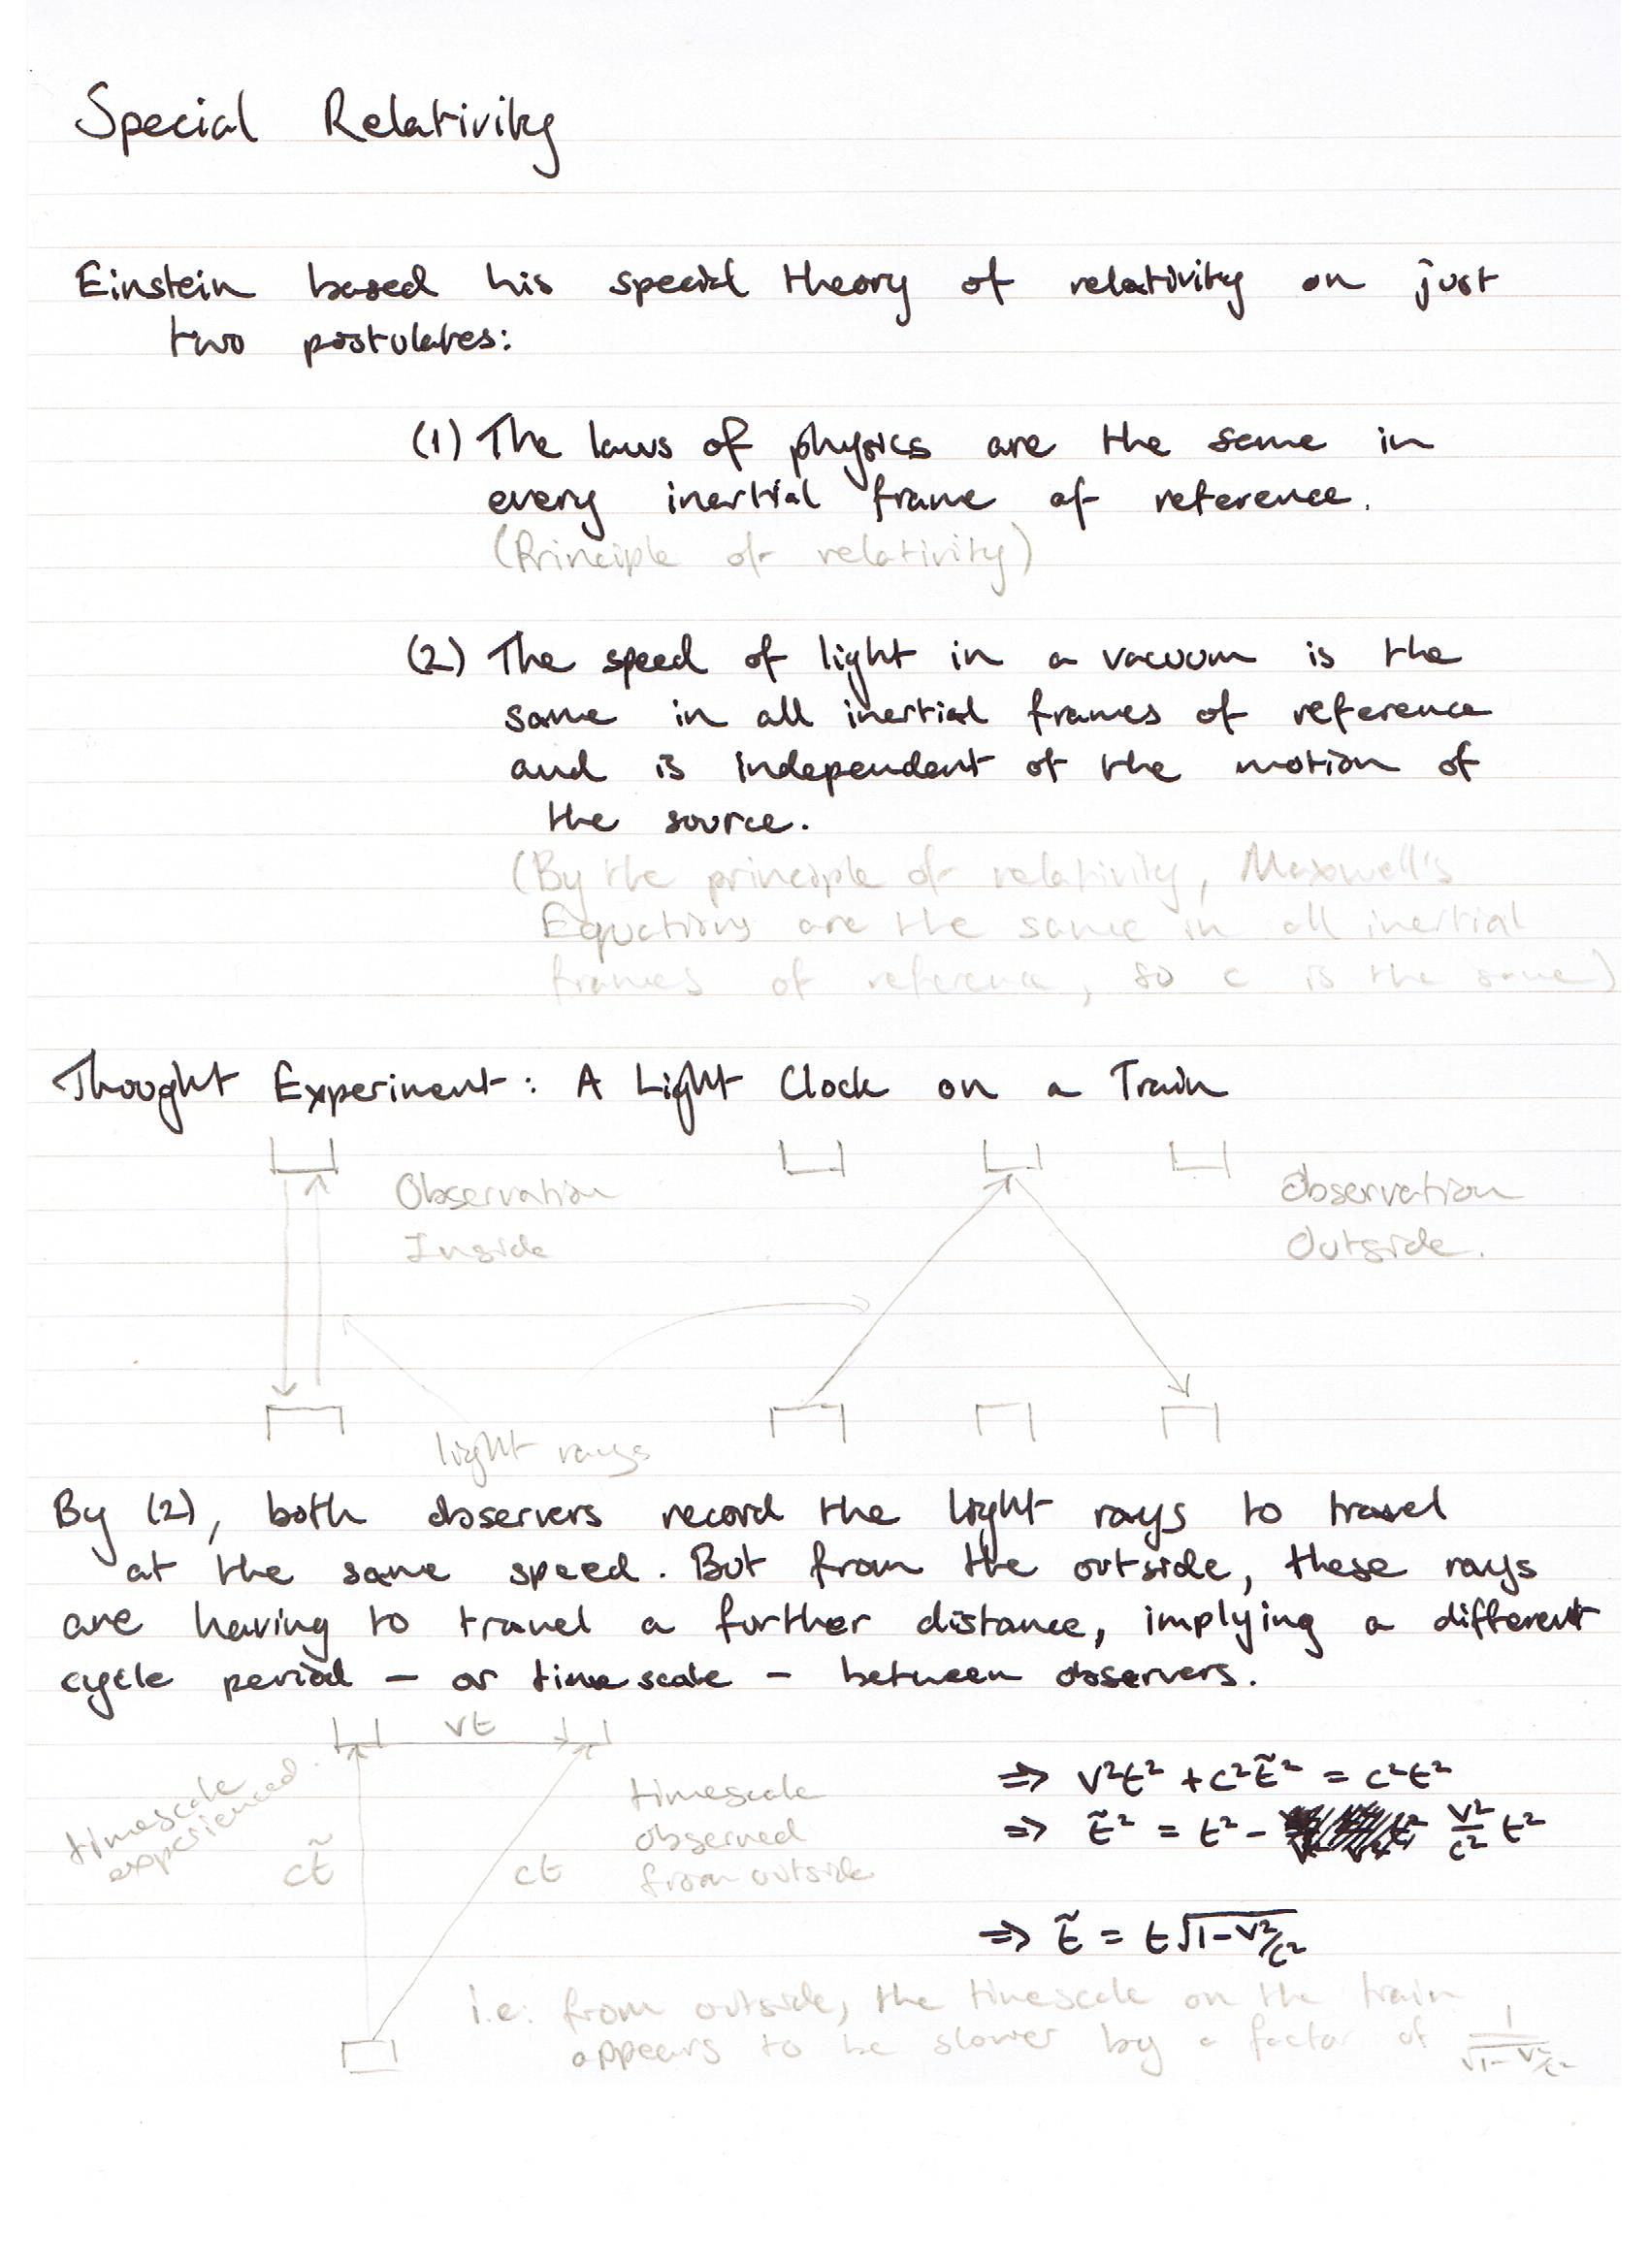 Special Relativity
Einstein based his special theory of relativity on just
two postulates:
(1) The laws of physics are the same in
every inertial frame of reference.
(Principle of relativity)
(2) The speed of light in a vacuum is the
same in all inertial frames of reference
and is independent of the motion of
the source.
(By the principle of relativity, Maxwell's
Equations are the same in all inertial
frames of reference, so c is the same)
Thought Experiment: A Light Clock on a Train
Observation
Inside
Observation
Outside.
light rays
By (2), both observers record the light rays to travel
at the same speed. But from the outside, these rays
are having to travel a further distance, implying a different
cycle period – or timescale – between observers.
vt
timescale
experienced.
ct̃
ct
timescale
observed
from outside
⇒ v²t² + c²t̃² = c²t²
⇒ t̃² = t² - v²/c² t²
⇒ t̃ = t√(1-v²/c²)
i.e. from outside, the timescale on the train
appears to be slower by a factor of 1/√(1-v²/c²)